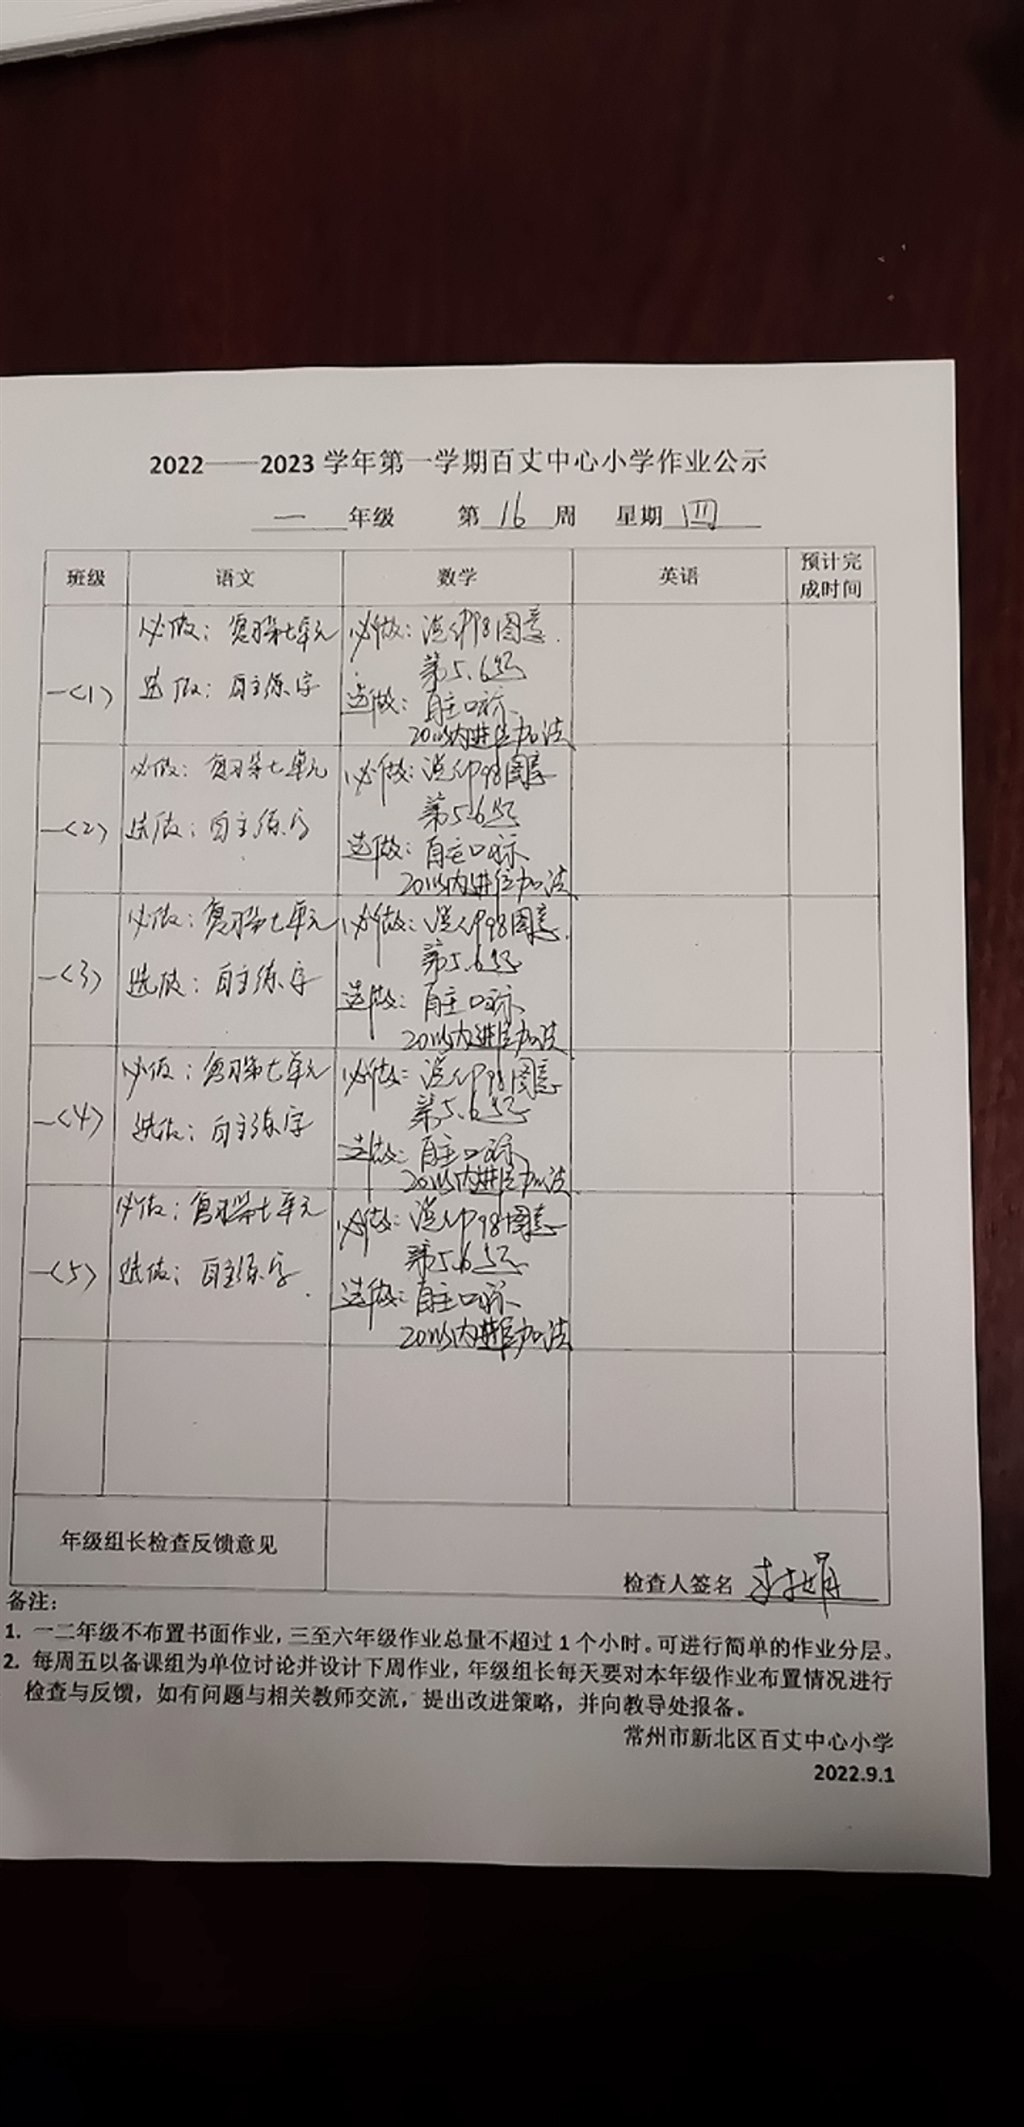 2022——2023 学年第一学期百丈中心小学作业公示
一 年级 第 16 周 星期 四
班级 语文 数学 英语 预计完成时间
一(1)
必做：复习第七单元
选做：自主练字
必做：说P98图意
第5.6题
选做：自主口标
20以内进位加法
一(2)
必做：复习第七单元
选做：自主练字
必做：说P98图意
第5.6题
选做：自主口标
20以内进位加法
一(3)
必做：复习第七单元
选做：自主练字
必做：说P98图意
第5.6题
选做：自主口标
20以内进位加法
一(4)
必做：复习第七单元
选做：自主练字
必做：说P98图意
第5.6题
选做：自主口标
20以内进位加法
一(5)
必做：复习第七单元
选做：自主练字
必做：说P98图意
第5.6题
选做：自主口标
20以内进位加法
年级组长检查反馈意见
检查人签名
备注：
1. 一二年级不布置书面作业，三至六年级作业总量不超过 1 个小时。可进行简单的作业分层。
2. 每周五以备课组为单位讨论并设计下周作业，年级组长每天要对本年级作业布置情况进行
检查与反馈，如有问题与相关教师交流，提出改进策略，并向教导处报备。
常州市新北区百丈中心小学
2022.9.1